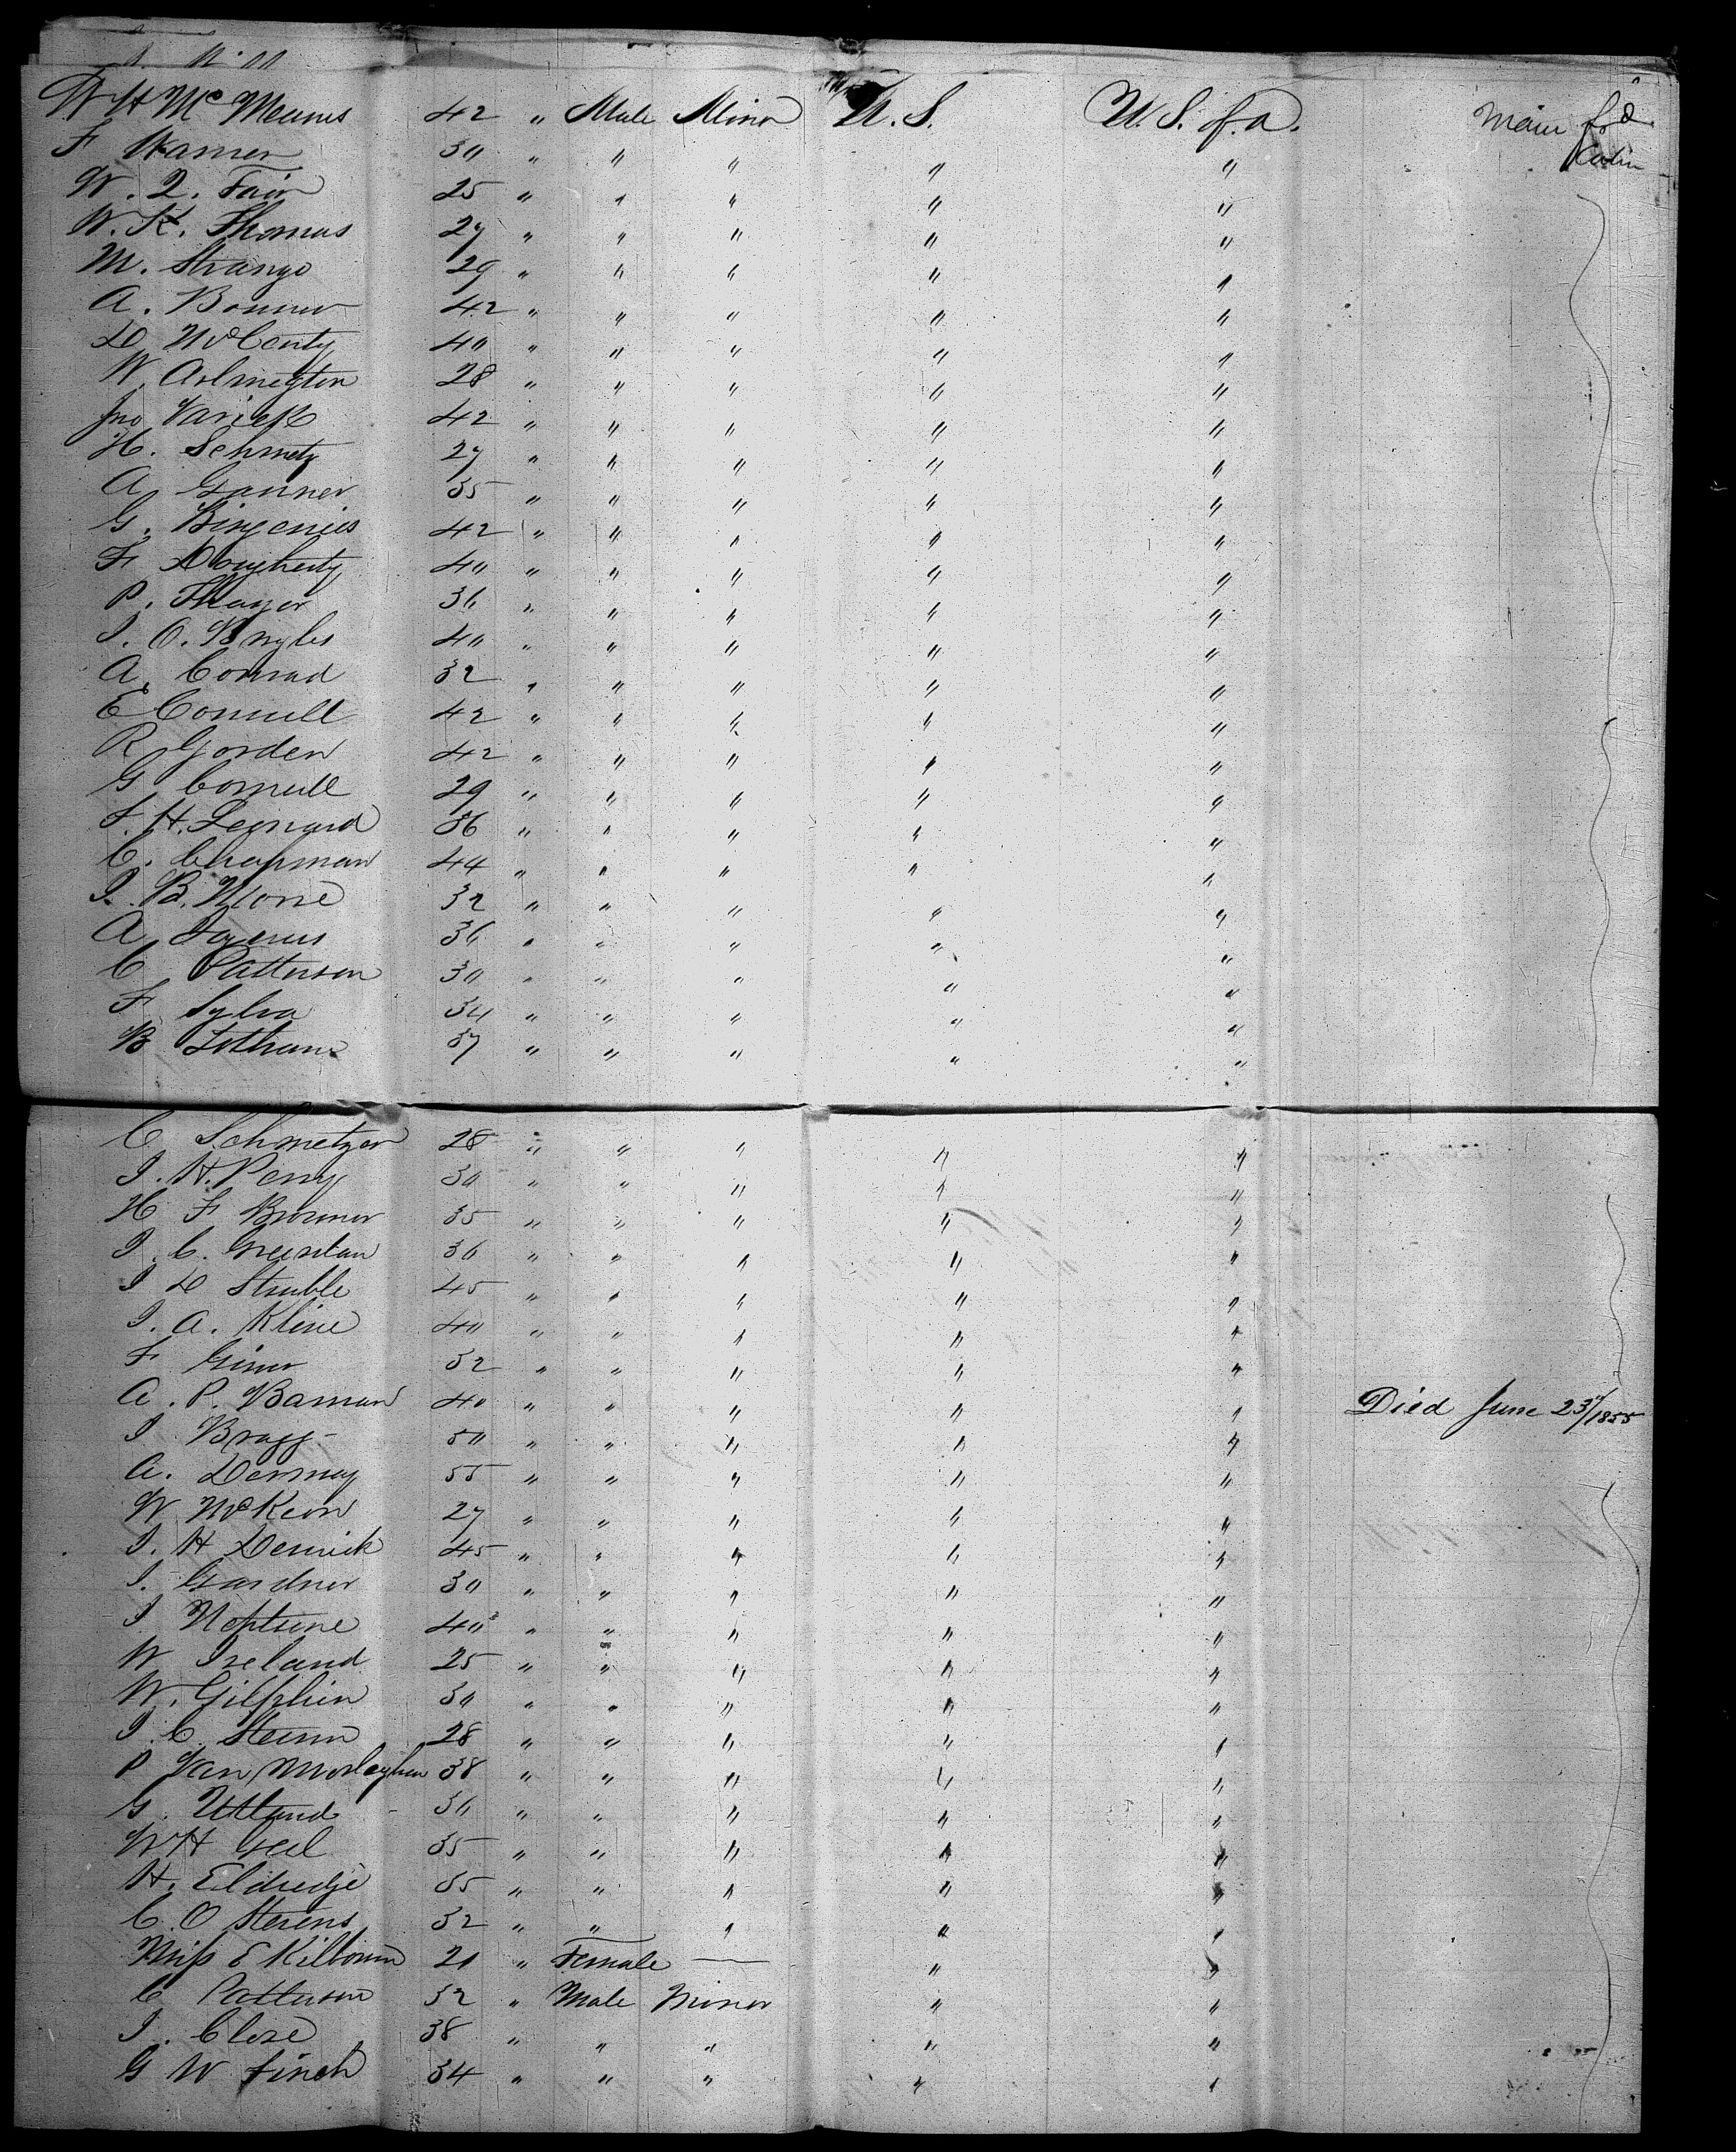 W H Mc Means 42 " Male Minor U.S. U.S. of a. Main fo d
F Warner 30 " " " " " Cabin
W. Q. Fair 25 " " " " "
W. K. Thomas 27 " " " " "
M. Strange 29 " " " " "
A. Bonner 42 " " " " "
D McCarty 40 " " " " "
W. Arlmigton 28 " " " " "
Jno Varick 42 " " " " "
H. Schmetz 27 " " " " "
A Ganner 35 " " " " "
G. 42 " " " " "
F Dougherty 40 " " " " "
P. Thayer 36 " " " " "
I. O. 40 " " " " "
A. Conrad 32 " " " " "
E Connell 42 " " " " "
R Gorden 42 " " " " "
G Connell 29 " " " " "
F. H. Leonard 36 " " " " "
C. Chapman 44 " " " " "
I. B. Morse 32 " " " " "
A 36 " " " " "
C Patterson 30 " " " " "
F Sylva 34 " " " " "
B Lothum 37 " " " " "
C Schmetzer 28 " " " " "
I. H. Perry 30 " " " " "
H F 35 " " " " "
I. C. 36 " " " " "
I D Struble 45 " " " " "
I. A. Kline 40 " " " " "
F 32 " " " " "
A. P. Baman 40 " " " " " Died June 23d/1855
I Bragg 50 " " " " "
A. 55 " " " " "
W McKeon 27 " " " " "
I. H Derrick 45 " " " " "
I. Gardner 30 " " " " "
I Neptune 40 " " " " "
W Ireland 25 " " " " "
W. Gilphin 30 " " " " "
I. C. 28 " " " " "
P Van 38 " " " " "
G. Utland 36 " " " " "
W H Geel 35 " " " " "
H. Eldredje 35 " " " " "
C. O Stevens 32 " " " " "
Miss E Kilbourn 21 " Female — " "
C Patterson 32 " Male Minor " "
I. Close 38 " " " " "
G W Finch 34 " " " " "